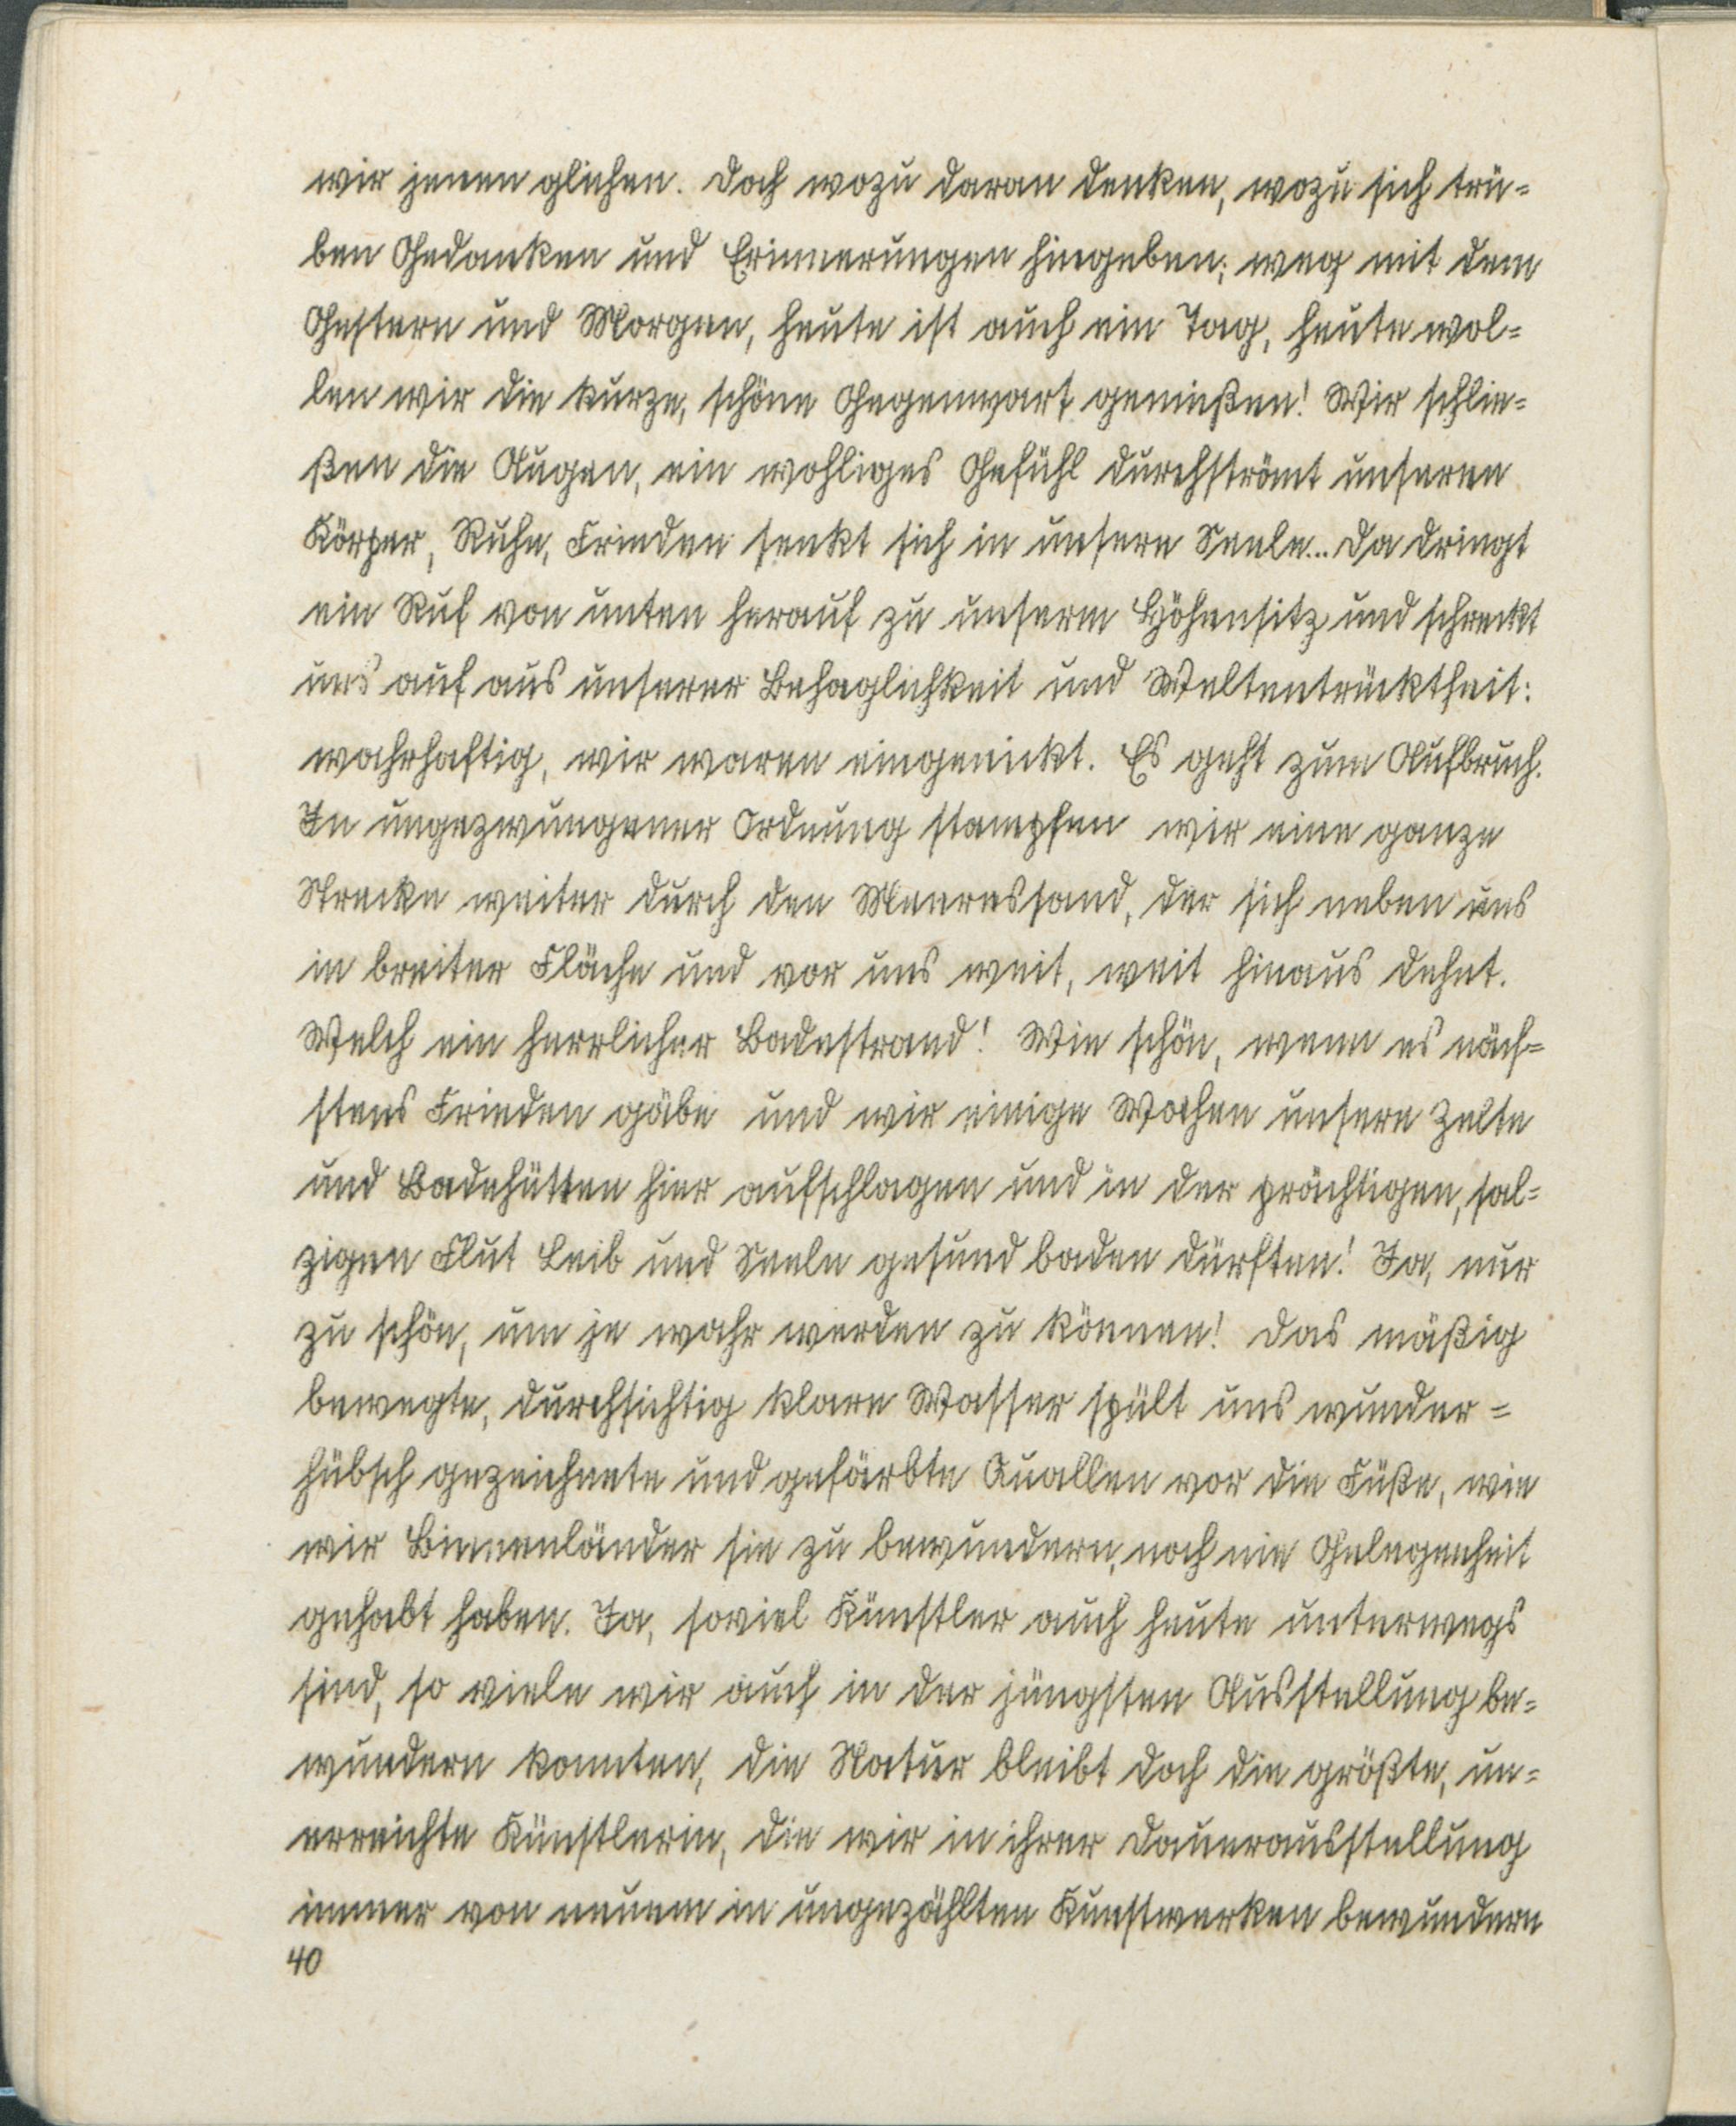 wir jenen glichen. Doch wozu daran denken, wozu sich trü-
ben Gedanken und Erinnerungen hingeben; weg mit dem
Gestern und Morgen, heute ist auch ein Tag, heute wol-
len wir die kurze, schöne Gegenwart genießen! Wir schlie-
ßen die Augen, ein wohliges Gefühl durchströmt unseren
Körper, Ruhe, Frieden senkt sich in unsere Seele... Da dringt
ein Ruf von unten herauf zu unserm Höhensitz und schreckt
uns auf aus unserer Behaglichkeit und Weltentrücktheit:
wahrhaftig, wir waren eingenickt. Es geht zum Aufbruch.
In ungezwungener Ordnung stampfen wir eine ganze
Strecke weiter durch den Meeressand, der sich neben uns
in breiter Fläche und vor uns weit, weit hinaus dehnt.
Welch ein herrlicher Badestrand! Wie schön, wenn es näch-
stens Frieden gäbe und wir einige Wochen unsere Zelte
und Badehütten hier aufschlagen und in der prächtigen, sal-
zigen Flut Leib und Seele gesund baden dürften! Ja, nur
zu schön, um je wahr werden zu können! Das mäßig
bewegte, durchsichtig klare Wasser spült uns wunder-
hübsch gezeichnete und gefärbte Quallen vor die Füße, wie
wir Binnenländer sie zu bewundern, noch nie Gelegenheit
gehabt haben. Ja, soviel Künstler auch heute unterwegs
sind, so viele wir auch in der jüngsten Ausstellung be-
wundern konnten, die Natur bleibt doch die größte, un-
erreichte Künstlerin, die wir in ihrer Dauerausstellung
immer von neuem in ungezählten Kunstwerken bewundern
40